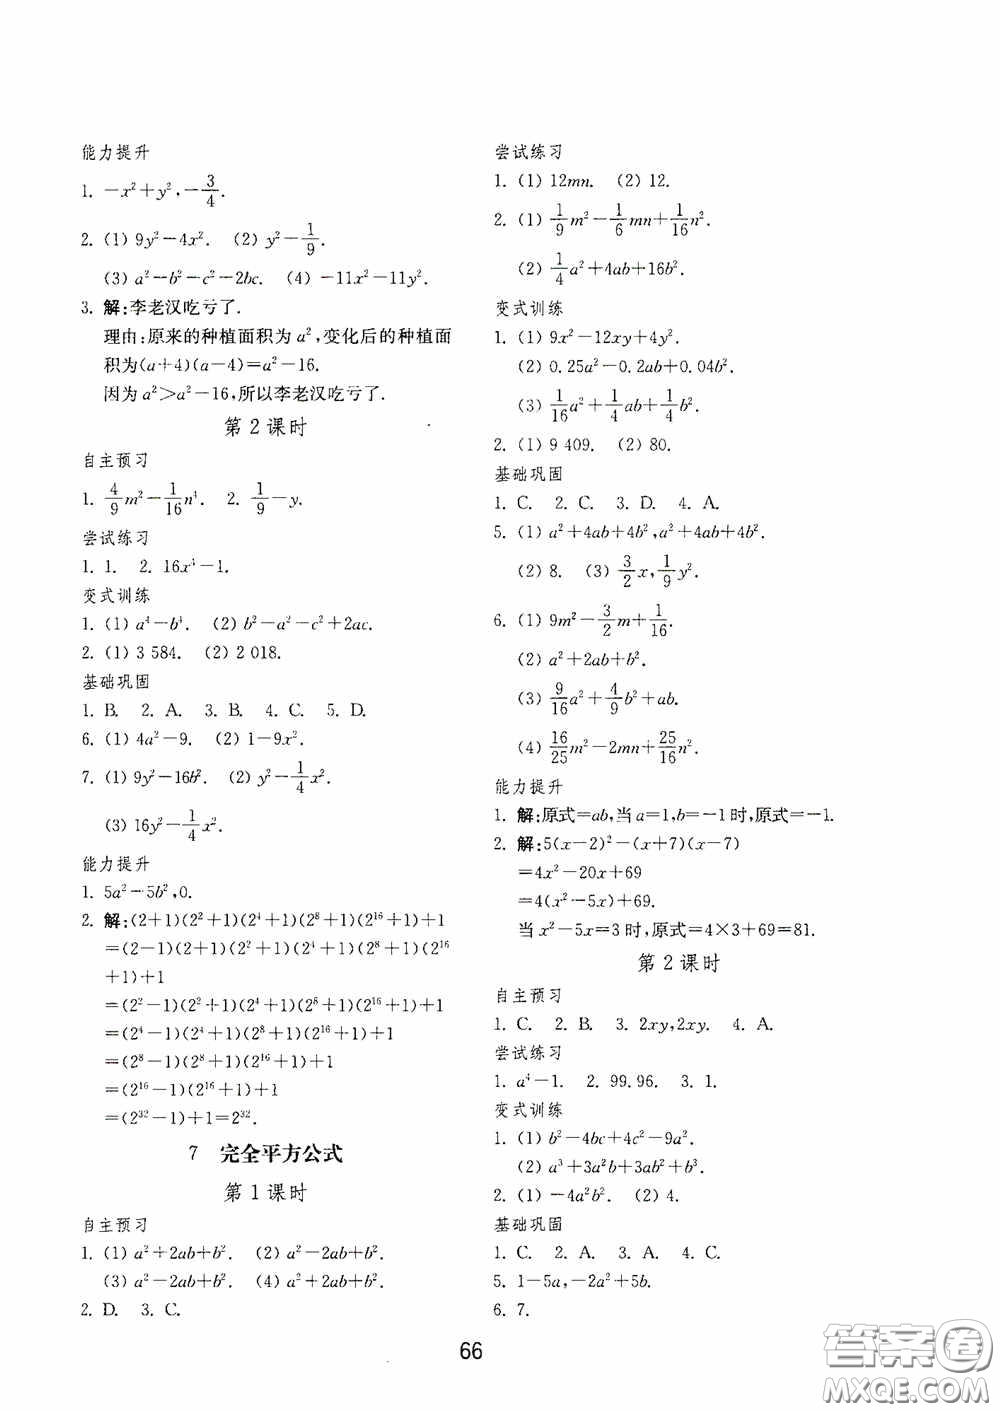 能力提升
1. −x²+y², −3/4.
2. (1) 9y²−4x². (2) y²−1/9.
(3) a²−b²−c²−2bc. (4) −11x²−11y².
3. 解:李老汉吃亏了.
理由:原来的种植面积为 a²,变化后的种植面
积为(a+4)(a−4)=a²−16.
因为 a²>a²−16,所以李老汉吃亏了.
第 2 课时
自主预习
1. 4/9m²−1/16n⁴. 2. 1/9−y.
尝试练习
1. 1. 2. 16x⁴−1.
变式训练
1. (1) a⁴−b⁴. (2) b²−a²−c²+2ac.
2. (1) 3 584. (2) 2 018.
基础巩固
1. B. 2. A. 3. B. 4. C. 5. D.
6. (1) 4a²−9. (2) 1−9x².
7. (1) 9y²−16b². (2) y²−1/4x².
(3) 16y²−1/4x².
能力提升
1. 5a²−5b²,0.
2. 解:(2+1)(2²+1)(2⁴+1)(2⁸+1)(2¹⁶+1)+1
=(2−1)(2+1)(2²+1)(2⁴+1)(2⁸+1)(2¹⁶
+1)+1
=(2²−1)(2²+1)(2⁴+1)(2⁸+1)(2¹⁶+1)+1
=(2⁴−1)(2⁴+1)(2⁸+1)(2¹⁶+1)+1
=(2⁸−1)(2⁸+1)(2¹⁶+1)+1
=(2¹⁶−1)(2¹⁶+1)+1
=(2³²−1)+1=2³².
7 完全平方公式
第 1 课时
自主预习
1. (1) a²+2ab+b². (2) a²−2ab+b².
(3) a²−2ab+b². (4) a²+2ab+b².
2. D. 3. C.
尝试练习
1. (1) 12mn. (2) 12.
2. (1) 1/9m²−1/6mn+1/16n².
(2) 1/4a²+4ab+16b².
变式训练
1. (1) 9x²−12xy+4y².
(2) 0.25a²−0.2ab+0.04b².
(3) 1/16a²+1/4ab+1/4b².
2. (1) 9 409. (2) 80.
基础巩固
1. C. 2. C. 3. D. 4. A.
5. (1) a²+4ab+4b²,a²+4ab+4b².
(2) 8. (3) 3/2x,1/9y².
6. (1) 9m²−3/2m+1/16.
(2) a²+2ab+b².
(3) 9/16a²+4/9b²+ab.
(4) 16/25m²−2mn+25/16n².
能力提升
1. 解:原式=ab,当 a=1,b=−1 时,原式=−1.
2. 解:5(x−2)²−(x+7)(x−7)
=4x²−20x+69
=4(x²−5x)+69.
当 x²−5x=3 时,原式=4×3+69=81.
第 2 课时
自主预习
1. C. 2. B. 3. 2xy,2xy. 4. A.
尝试练习
1. a⁴−1. 2. 99.96. 3. 1.
变式训练
1. (1) b²−4bc+4c²−9a².
(2) a³+3a²b+3ab²+b³.
2. (1) −4a²b². (2) 4.
基础巩固
1. C. 2. A. 3. A. 4. C.
5. 1−5a,−2a²+5b.
6. 7.
66
答案卷
MXQE.COM